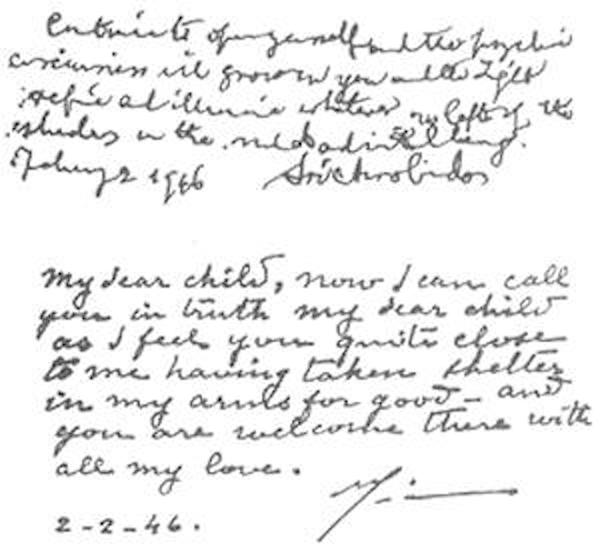 of yourself and the psychic
will grow in you and the Light
whatever is left of the
in the mind and vital being.
February 2 1946 Sri Aurobindo
My dear child, now I can call
you in truth my dear child
as I feel you quite close
to me having taken shelter
in my arms for good - and
you are welcome there with
all my love.
2-2-46.